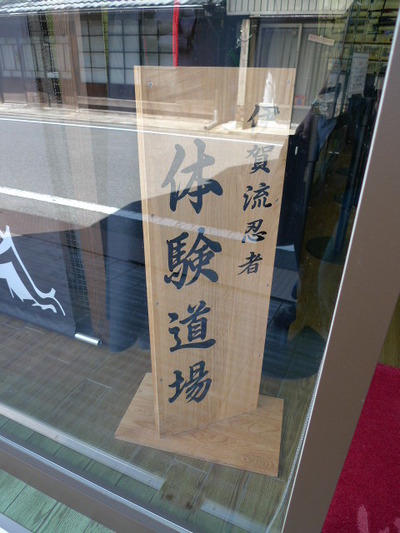 伊賀流忍者
体験道場